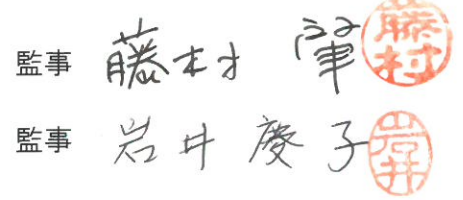 監事 藤村 肇 藤村
監事 岩井 慶子 岩井